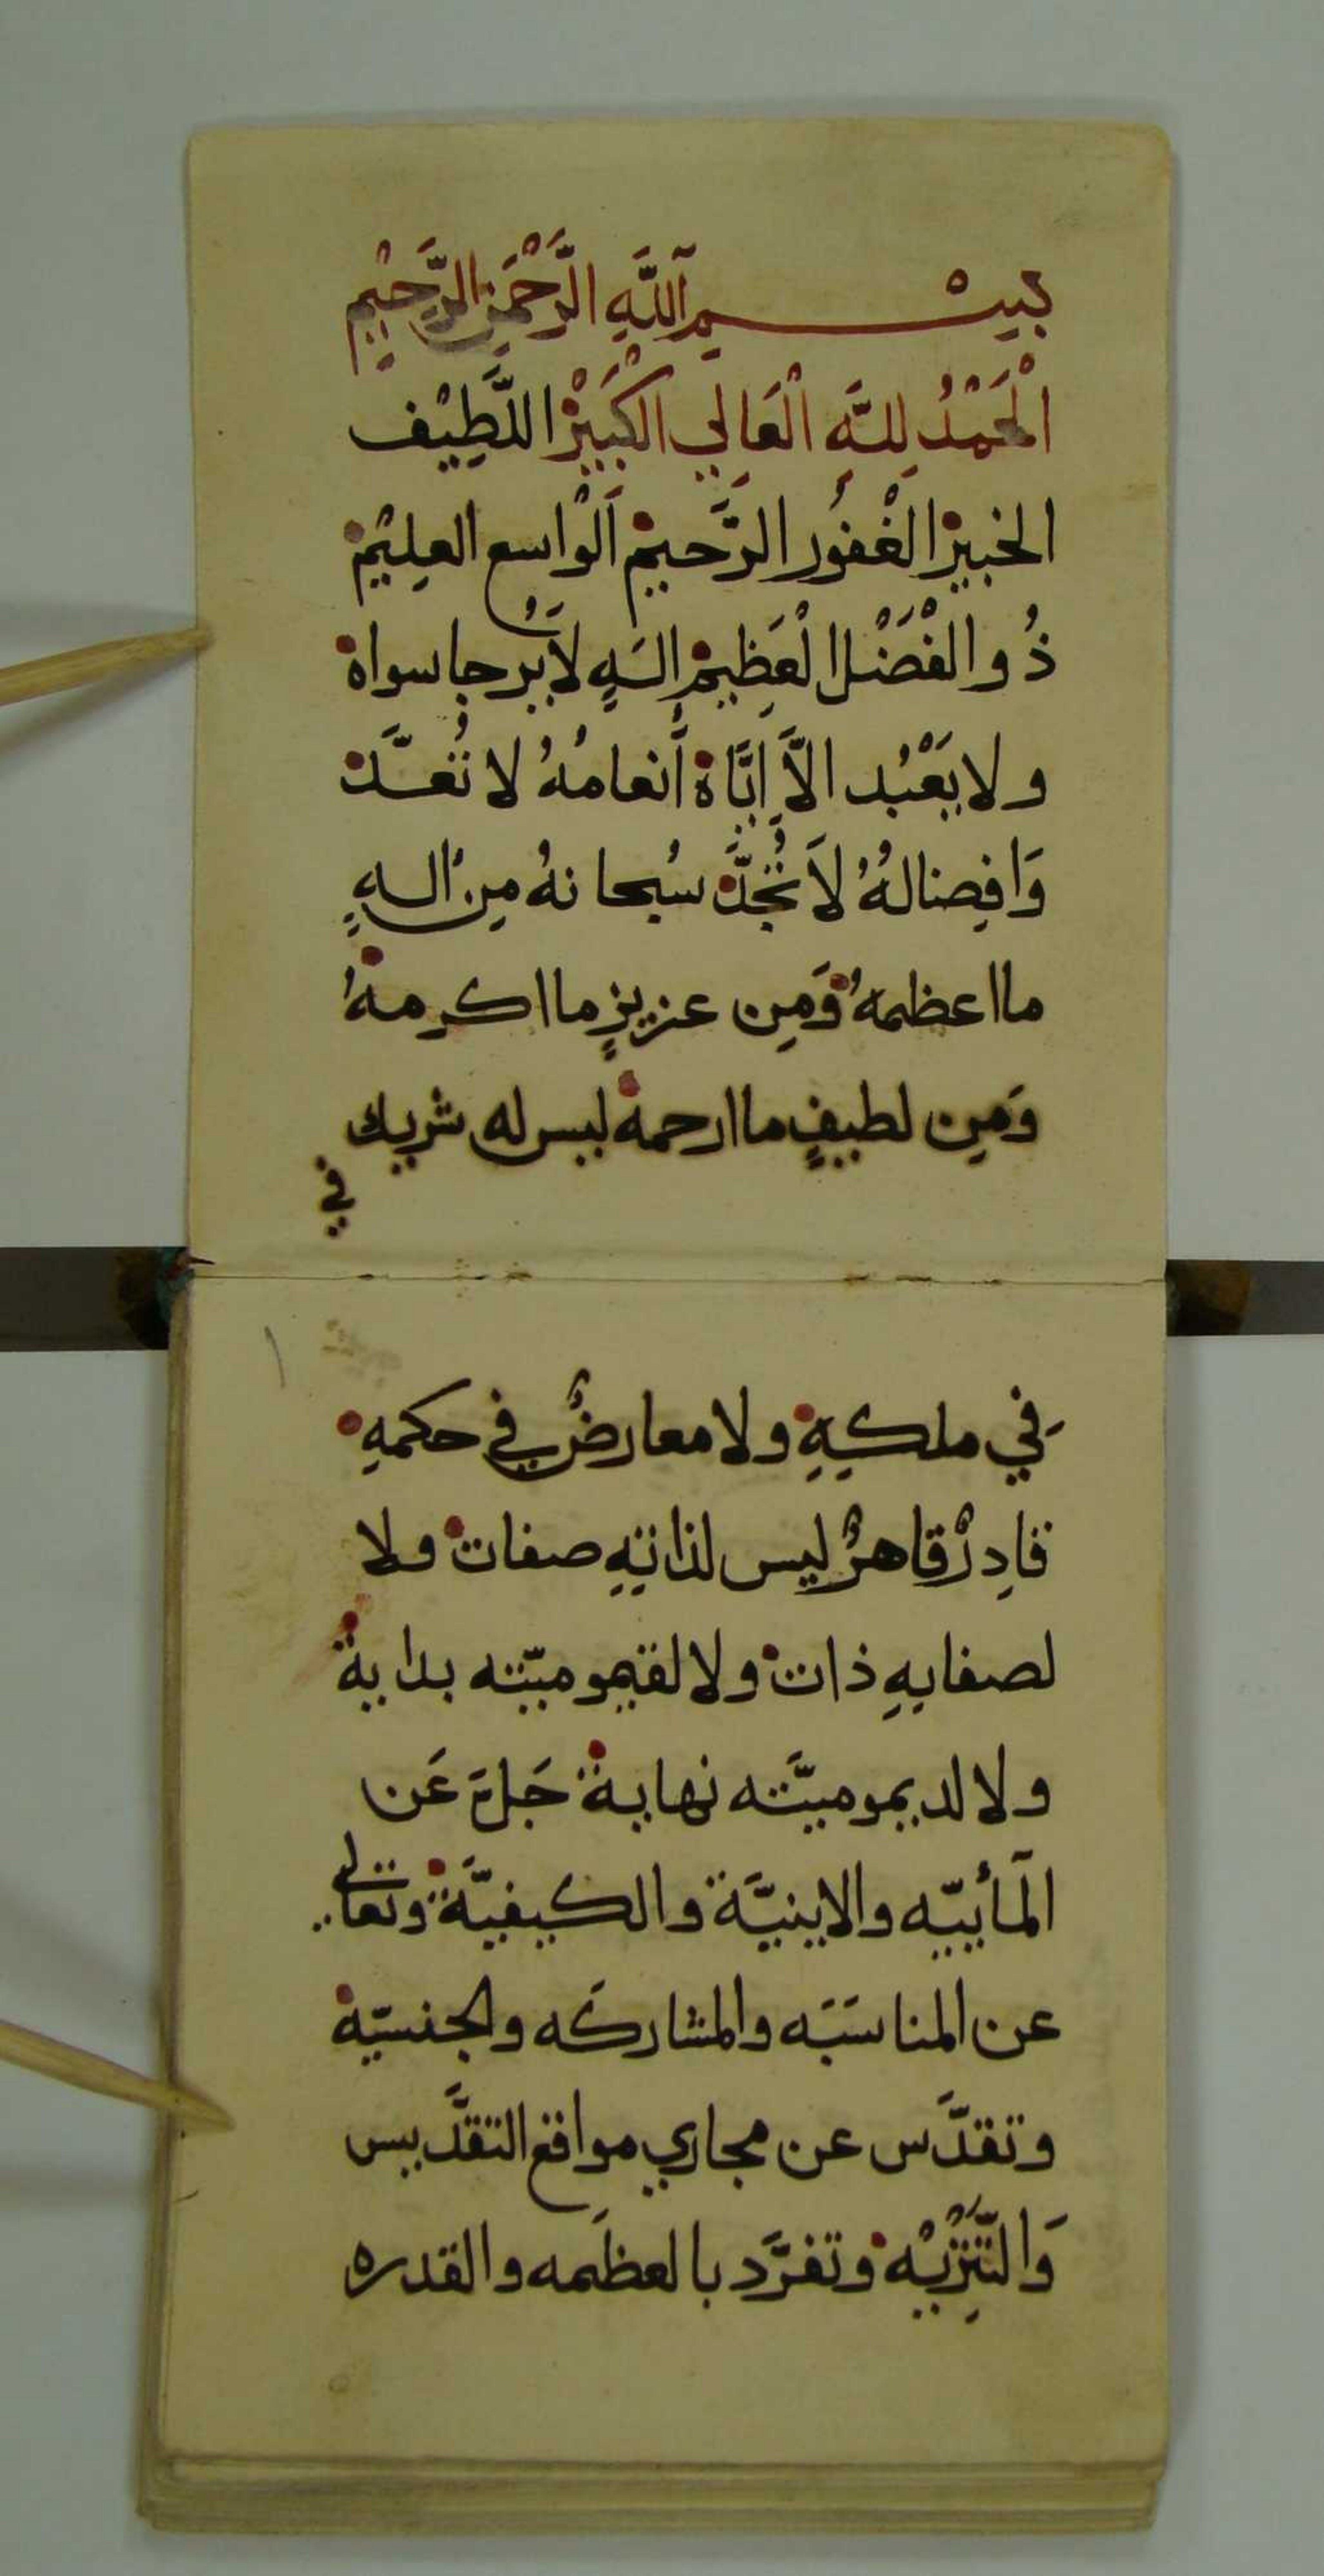 بِسْمِ اللَّهِ الرَّحْمَنِ الرَّحِيْمِ
الْحَمْدُ لِلَّهِ الْعَالِي الْكَبِيْرْ اللَّطِيْف
الخبيرْ الغْفُور الرَّحيمْ اَلْواسع العليمْ
ذُو الفْضَلْ الْعَظِيمْ الَهٍ لَا يُرجا سواهْ
ولا يَعْبُد الَّا اِيَّاهْ أَنعامُهُ لا تُعدَّ
وَافِضالهُ لَا تُحَدَّ سُبحانهُ مِن الهٍ
ما اعظمهُ وَمِن عزيزٍ ما اكرمهُ
وَمِن لطيفٍ ما ارحمهْ ليس له شريك
في
١
في ملكهِ ولا معارضٌ في حكمهِ
قادِرٌ قاهرٌ ليس لذاتهِ صفات ولا
لصفاتهِ ذات ولا لقيموميّته بداية
ولا لديموميَّته نهاية جَلَّ عَن
المأييّه والاينيَّة والكيفيَّة وتعالى
عن المناسَبَه والمشاركَه والجنسيّة
وتقدَّس عن مجاري مواقع التقدّيس
وَالتَّنْزِيْه وتفرَّد بالعظَمه والقدره